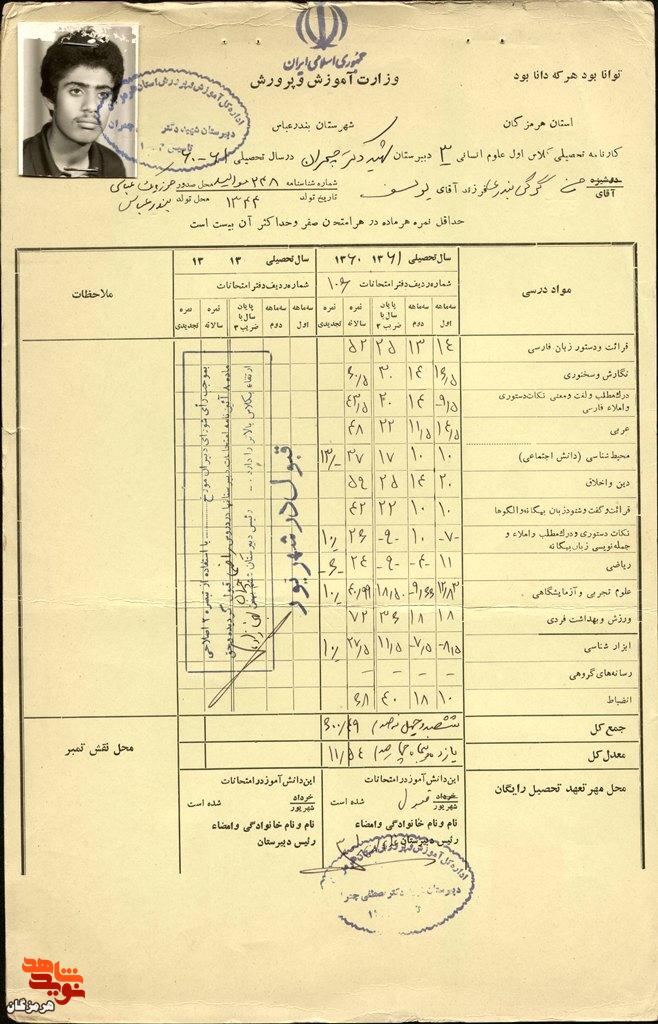 جمهوری اسلامی ایران
وزارت آموزش و پرورش
توانا بود هر که دانا بود
اداره کل آموزش و پرورش استان هرمزگان
دبیرستان شهید دکتر چمران
استان هرمزگان شهرستان بندرعباس
کارنامه تحصیلی کلاس اول علوم انسانی ۳ دبیرستان شهید دکتر چمران در سال تحصیلی ۶۱-۶۰
دوشیزه
آقای گرگی بندری فرزند آقای یوسف شماره شناسنامه ۲۴۸ محل صدور
تاریخ تولد ۱۳۴۴ محل تولد بندرعباس
حداقل نمره هر ماده در هر امتحان صفر و حداکثر آن بیست است
مواد درسی
سال تحصیلی ۱۳۶۱ ۱۳۶۰
سال تحصیلی ۱۳ ۱۳
ملاحظات
شماره ردیف دفتر امتحانات ۱۰۶
شماره ردیف دفتر امتحانات
سه ماهه اول سه ماهه دوم پایان سال با ضریب ۲ نمره سالانه نمره تجدیدی
سه ماهه اول سه ماهه دوم پایان سال با ضریب ۲ نمره سالانه نمره تجدیدی
قرائت و دستور زبان فارسی ۱۴ ۱۳ ۲۵ ۵۲
نگارش و سخنوری ۱۶/۵ ۱۴ ۳۰ ۶۰/۵
درک مطلب و لغت و معنی نکات دستوری و املاء فارسی ۹/۵ ۱۴ ۲۰ ۴۳/۵
عربی ۱۴/۵ ۱۱/۵ ۲۲ ۴۸
محیط شناسی (دانش اجتماعی) ۱۰ ۱۰ ۱۷ ۳۷ ۱۳/-
دین و اخلاق ۲۰ ۱۴ ۲۵ ۵۹
قرائت و گفت و شنود زبان بیگانه و الگوها ۱۰ ۱۰ ۲۲ ۴۲
نکات دستوری و درک مطلب و املاء و جمله نویسی زبان بیگانه -۷- ۱۰ -۹- ۲۶ ۱۰/
ریاضی ۱۱ -۴- -۹- ۲۴ -۶-
علوم تجربی و آزمایشگاهی ۱۲/۸۳ ۹/۶۶ ۱۸/۵ ۴۰/۹۹ ۱۰/
ورزش و بهداشت فردی ۱۸ ۱۸ ۳۶ ۷۲
ابزار شناسی ۸/۵ ۷/۵ ۱۱/۵ ۲۷/۵ ۱۰/
رسانه های گروهی - - - -
انضباط ۱۰ ۱۸ ۴۰ ۶۸
جمع کل
معدل کل ۱۱/۵۴
بموجب رأی شورای دبیران مورخ .......... با استفاده از تبصره ۲ اصلاحی
ماده ۸ آئین نامه امتحانات دبیرستانها در دروس ریاضی قبول گردیده و حق
ارتقاء بکلاس بالاتر را دارد ... رئیس دبیرستان
قبول در شهریور
محل نقش تمبر
محل مهر تعهد تحصیل رایگان
این دانش آموز در امتحانات
خرداد
شهریور قبول شده است
نام و نام خانوادگی و امضاء
رئیس دبیرستان
این دانش آموز در امتحانات
خرداد
شهریور شده است
نام و نام خانوادگی و امضاء
رئیس دبیرستان
اداره کل آموزش و پرورش استان هرمزگان
دبیرستان دکتر مصطفی چمران
نوید شاهد
هرمزگان